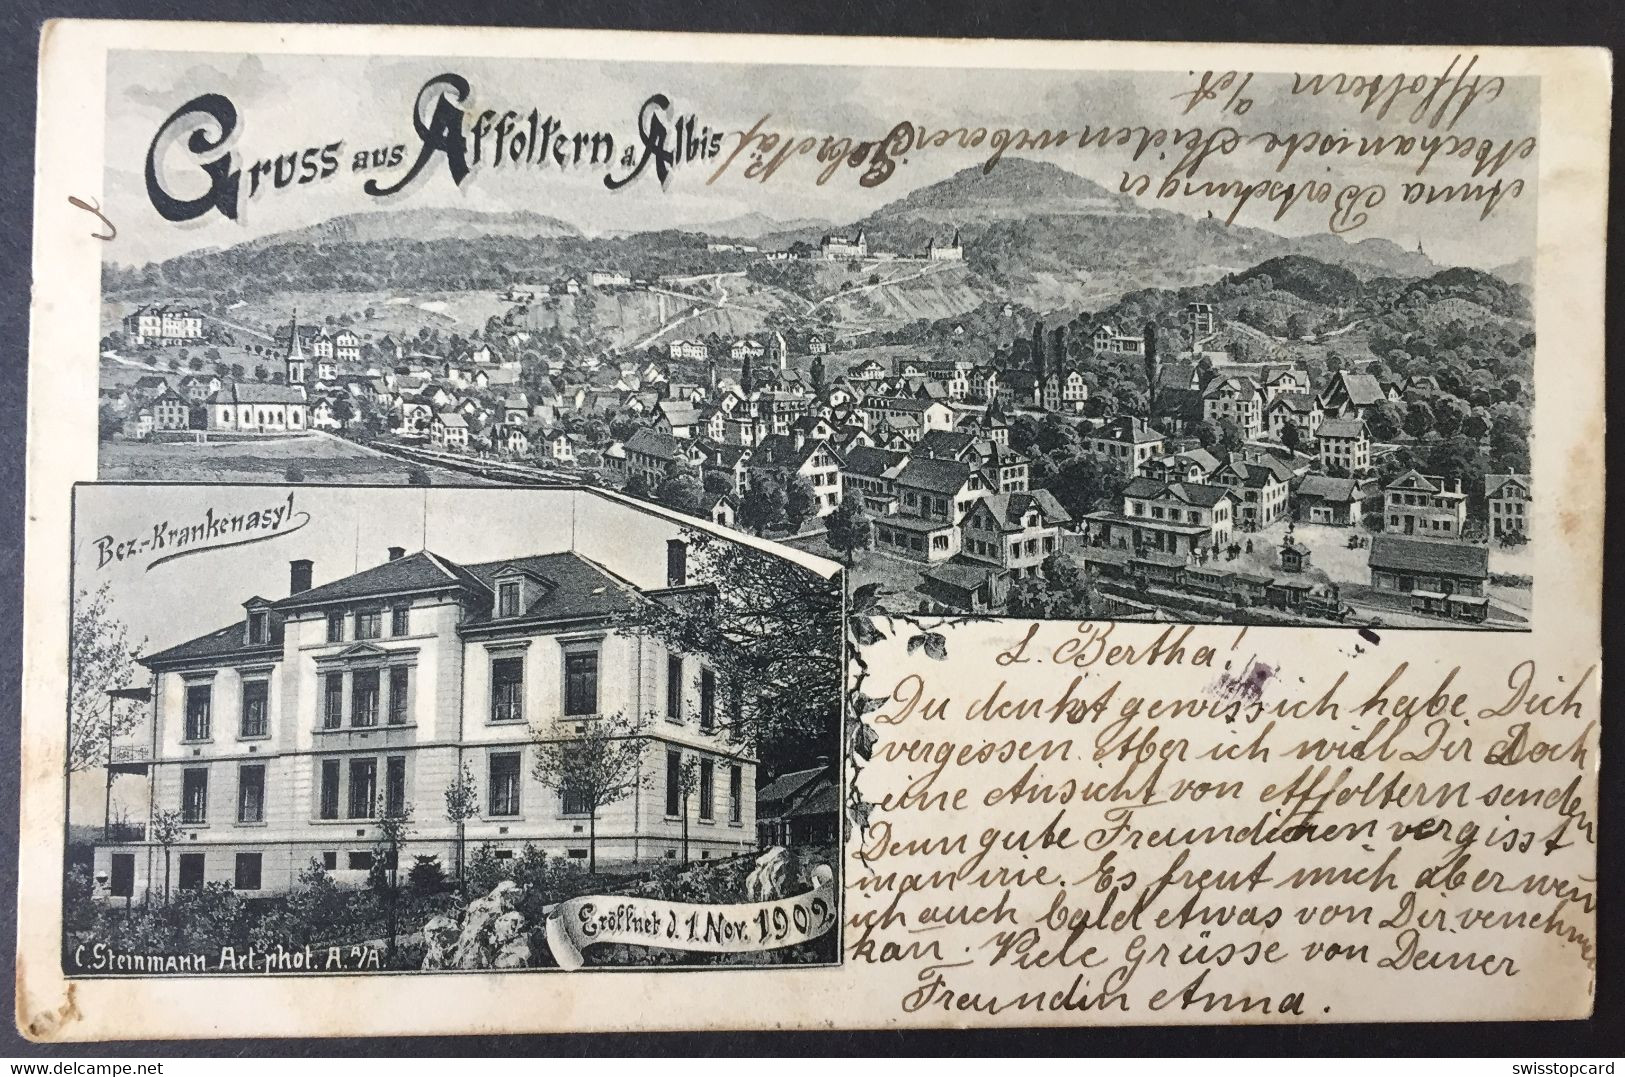 Gruss aus Affoltern a. Albis
Anna Bertschinger
Mechanische Seidenweberei
Affoltern a/A.
Bez.-Krankenasyl
Eröffnet d. 1. Nov. 1902
C. Steinmann Art. phot. A. a/A.
L. Bertha!
Du denkst gewiss ich habe Dich
vergessen. Aber ich will Dir doch
eine Ansicht von Affoltern senden
Denn gute Freundinen vergisst
man nie. Es freut mich aber wen
ich auch bald etwas von Dir vernehmen
kan̄. Viele Grüsse von Deiner
Freundin Anna.
swisstopcard
delcampe.net